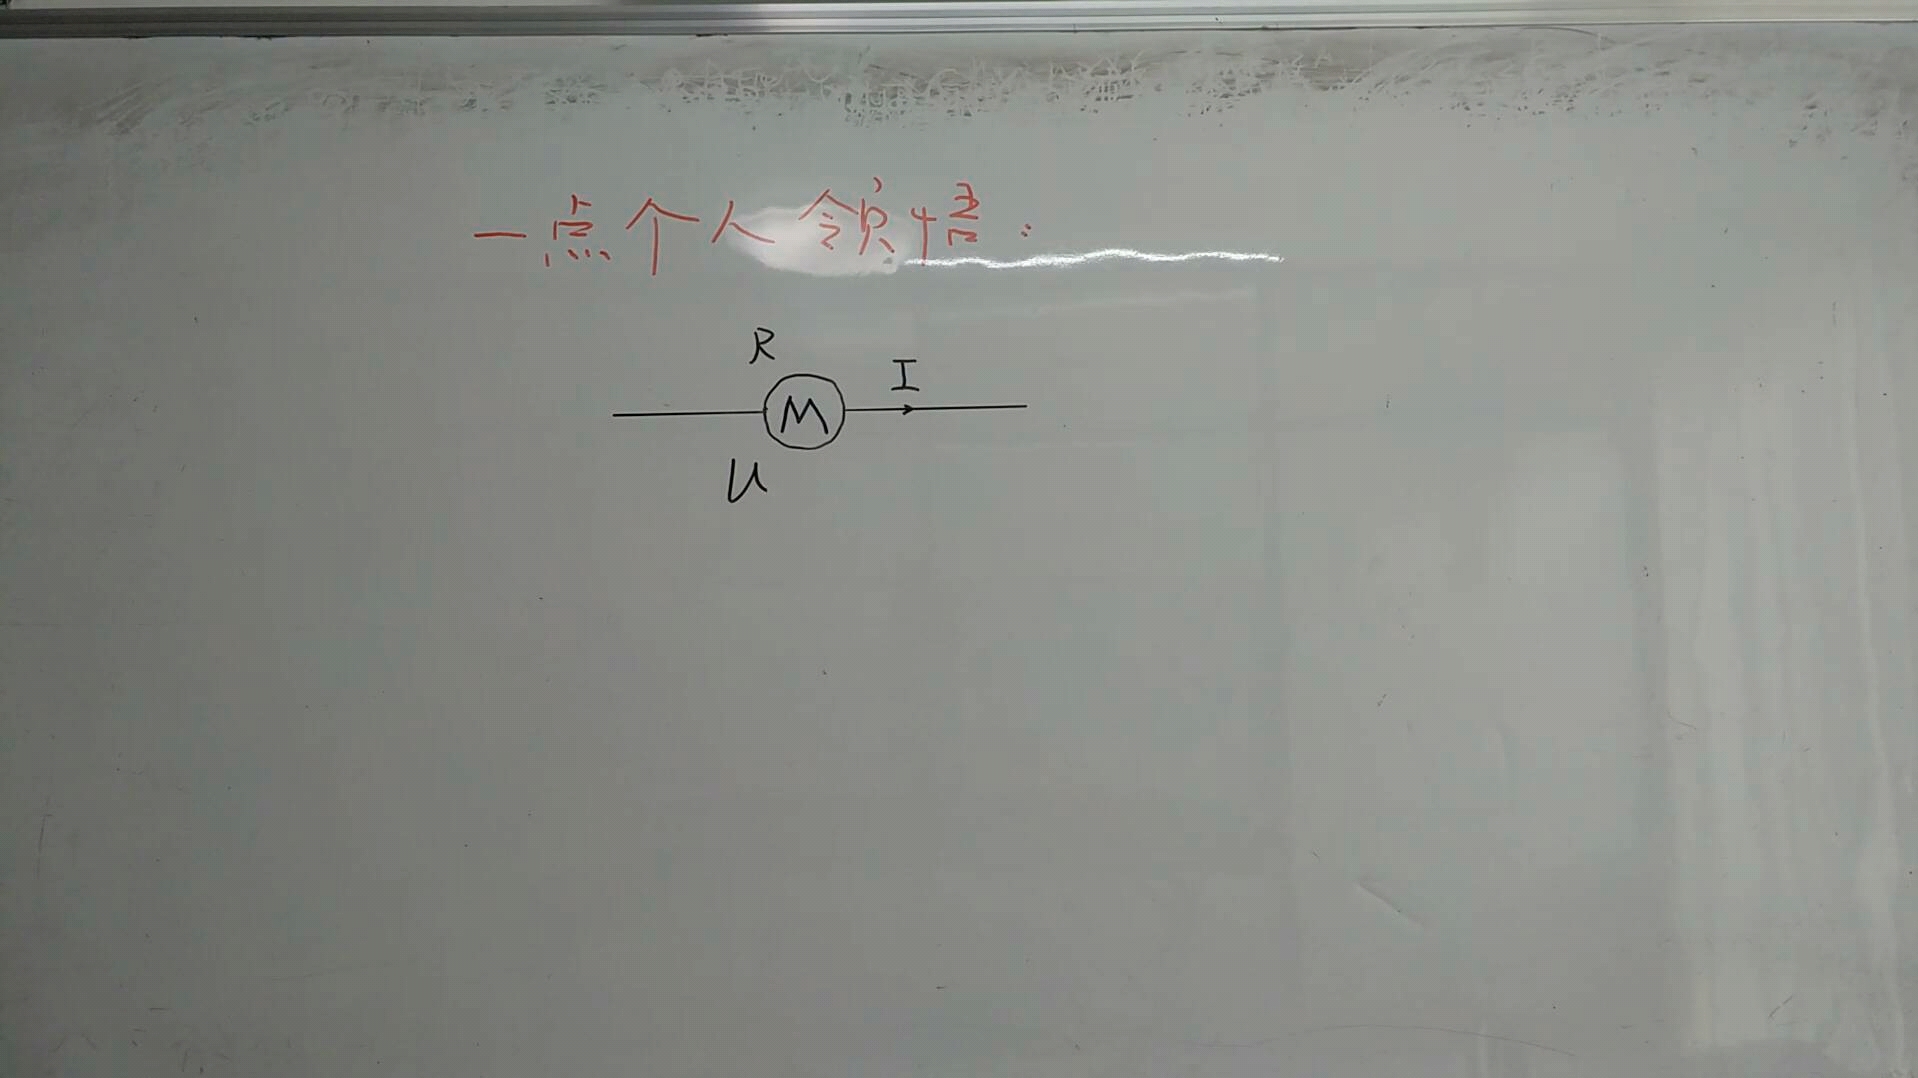 一点个人领悟:
R
I
M
U